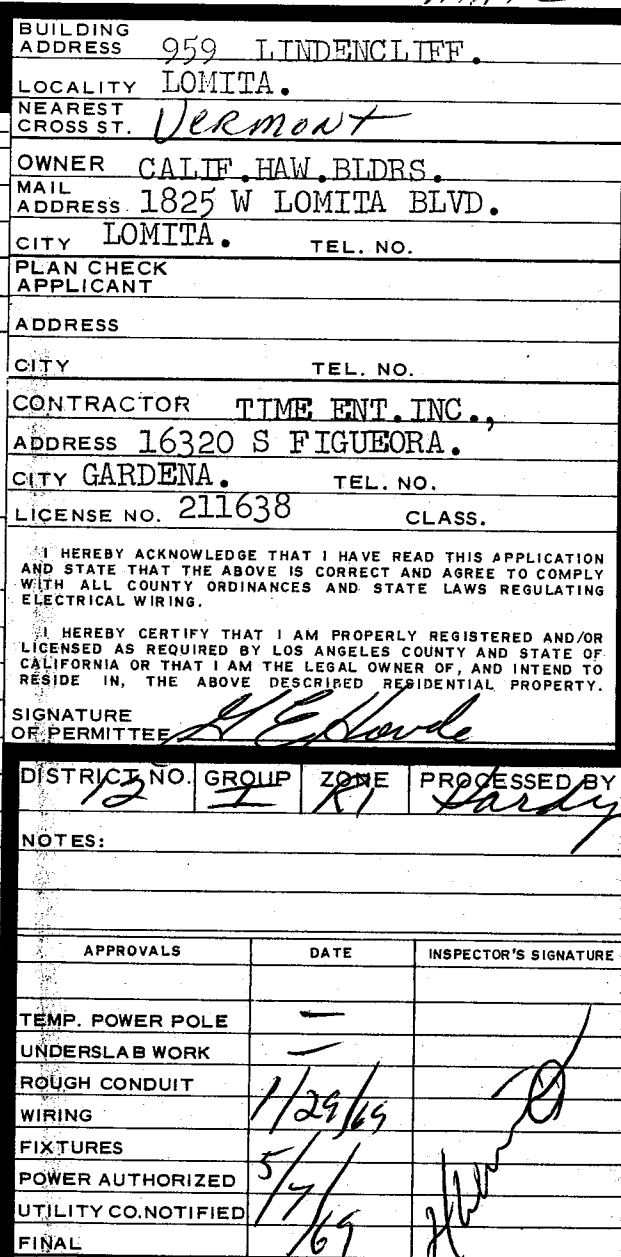 BUILDING
ADDRESS 959 LINDENCLIFF.
LOCALITY LOMITA.
NEAREST
CROSS ST. VERMONT
OWNER CALIF.HAW.BLDRS.
MAIL
ADDRESS 1825 W LOMITA BLVD.
CITY LOMITA. TEL. NO.
PLAN CHECK
APPLICANT
ADDRESS
CITY TEL. NO.
CONTRACTOR TIME ENT.INC.,
ADDRESS 16320 S FIGUEORA.
CITY GARDENA. TEL. NO.
LICENSE NO. 211638 CLASS.
I HEREBY ACKNOWLEDGE THAT I HAVE READ THIS APPLICATION
AND STATE THAT THE ABOVE IS CORRECT AND AGREE TO COMPLY
WITH ALL COUNTY ORDINANCES AND STATE LAWS REGULATING
ELECTRICAL WIRING.
I HEREBY CERTIFY THAT I AM PROPERLY REGISTERED AND/OR
LICENSED AS REQUIRED BY LOS ANGELES COUNTY AND STATE OF
CALIFORNIA OR THAT I AM THE LEGAL OWNER OF, AND INTEND TO
RESIDE IN, THE ABOVE DESCRIBED RESIDENTIAL PROPERTY.
SIGNATURE
OF PERMITTEE G E Hovde
DISTRICT NO. GROUP ZONE PROCESSED BY
12 I R1 Hardy
NOTES:
APPROVALS DATE INSPECTOR'S SIGNATURE
TEMP. POWER POLE —
UNDERSLAB WORK —
ROUGH CONDUIT
WIRING 1/29/69
FIXTURES
POWER AUTHORIZED 5/7/69
UTILITY CO.NOTIFIED
FINAL